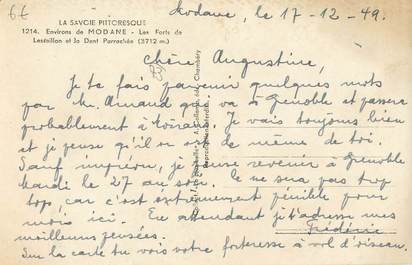 6€
LA SAVOIE PITTORESQUE
1214. Environs de MODANE - Les Forts de
Lesseillon et la Dent Parrachée (3712 m.)
Modane, le 17-12-49.
Chère Augustine,
Je te fais parvenir quelques mots
par M. Arnaud qui va à Grenoble et passera
probablement à Voiron. Je vais toujours bien
et je pense qu'il en est de même de toi.
Sauf imprévu, je pense revenir à Grenoble
mardi le 27 au soir. Ce ne sera pas trop
top, car c'est extrêmement pénible pour
moi ici. En attendant je t'adresse mes
meilleures pensées. Frédéric
Sur la carte tu vois votre forteresse à vol d'oiseau.
Chambéry
Reproduction interdite